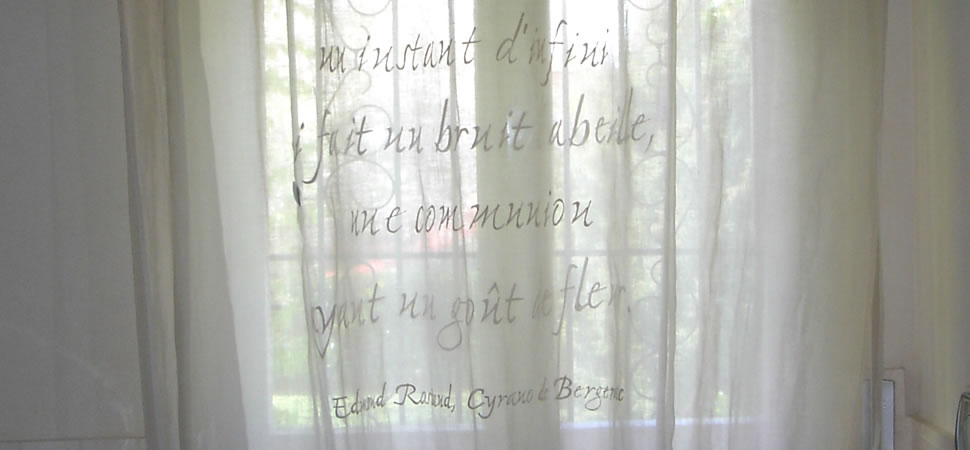 un instant d'infini
i fait un bruit abeille,
une communion
yant un goût de fleur.
Edmond Rostand, Cyrano de Bergerac